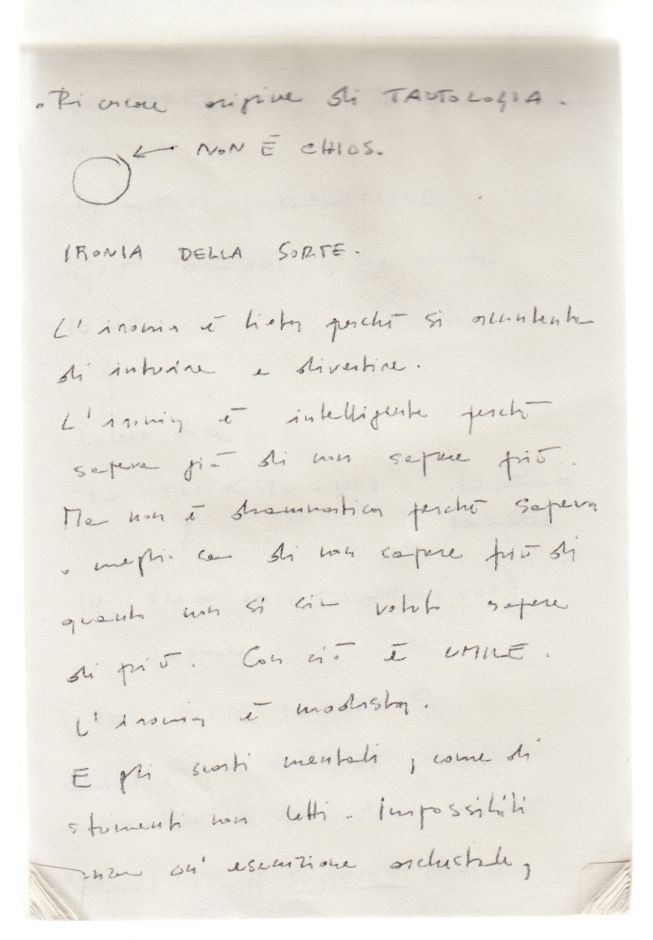 . Ricercare origine di TAUTOLOGIA.
← NON È CHIOS.
IRONIA DELLA SORTE.
L'ironia è lieta perché si accontenta
di intuire e divertire.
L'ironia è intelligente perché
sapeva già di non sapere più.
Ma non è drammatica perché sapeva
o meglio di non sapere più di
quanto non si sia voluto sapere
di più. Con ciò è UMILE.
L'ironia è modesta.
E gli scarti mentali, come di
strumenti non letti. Impossibili
un'esecuzione orchestrale,